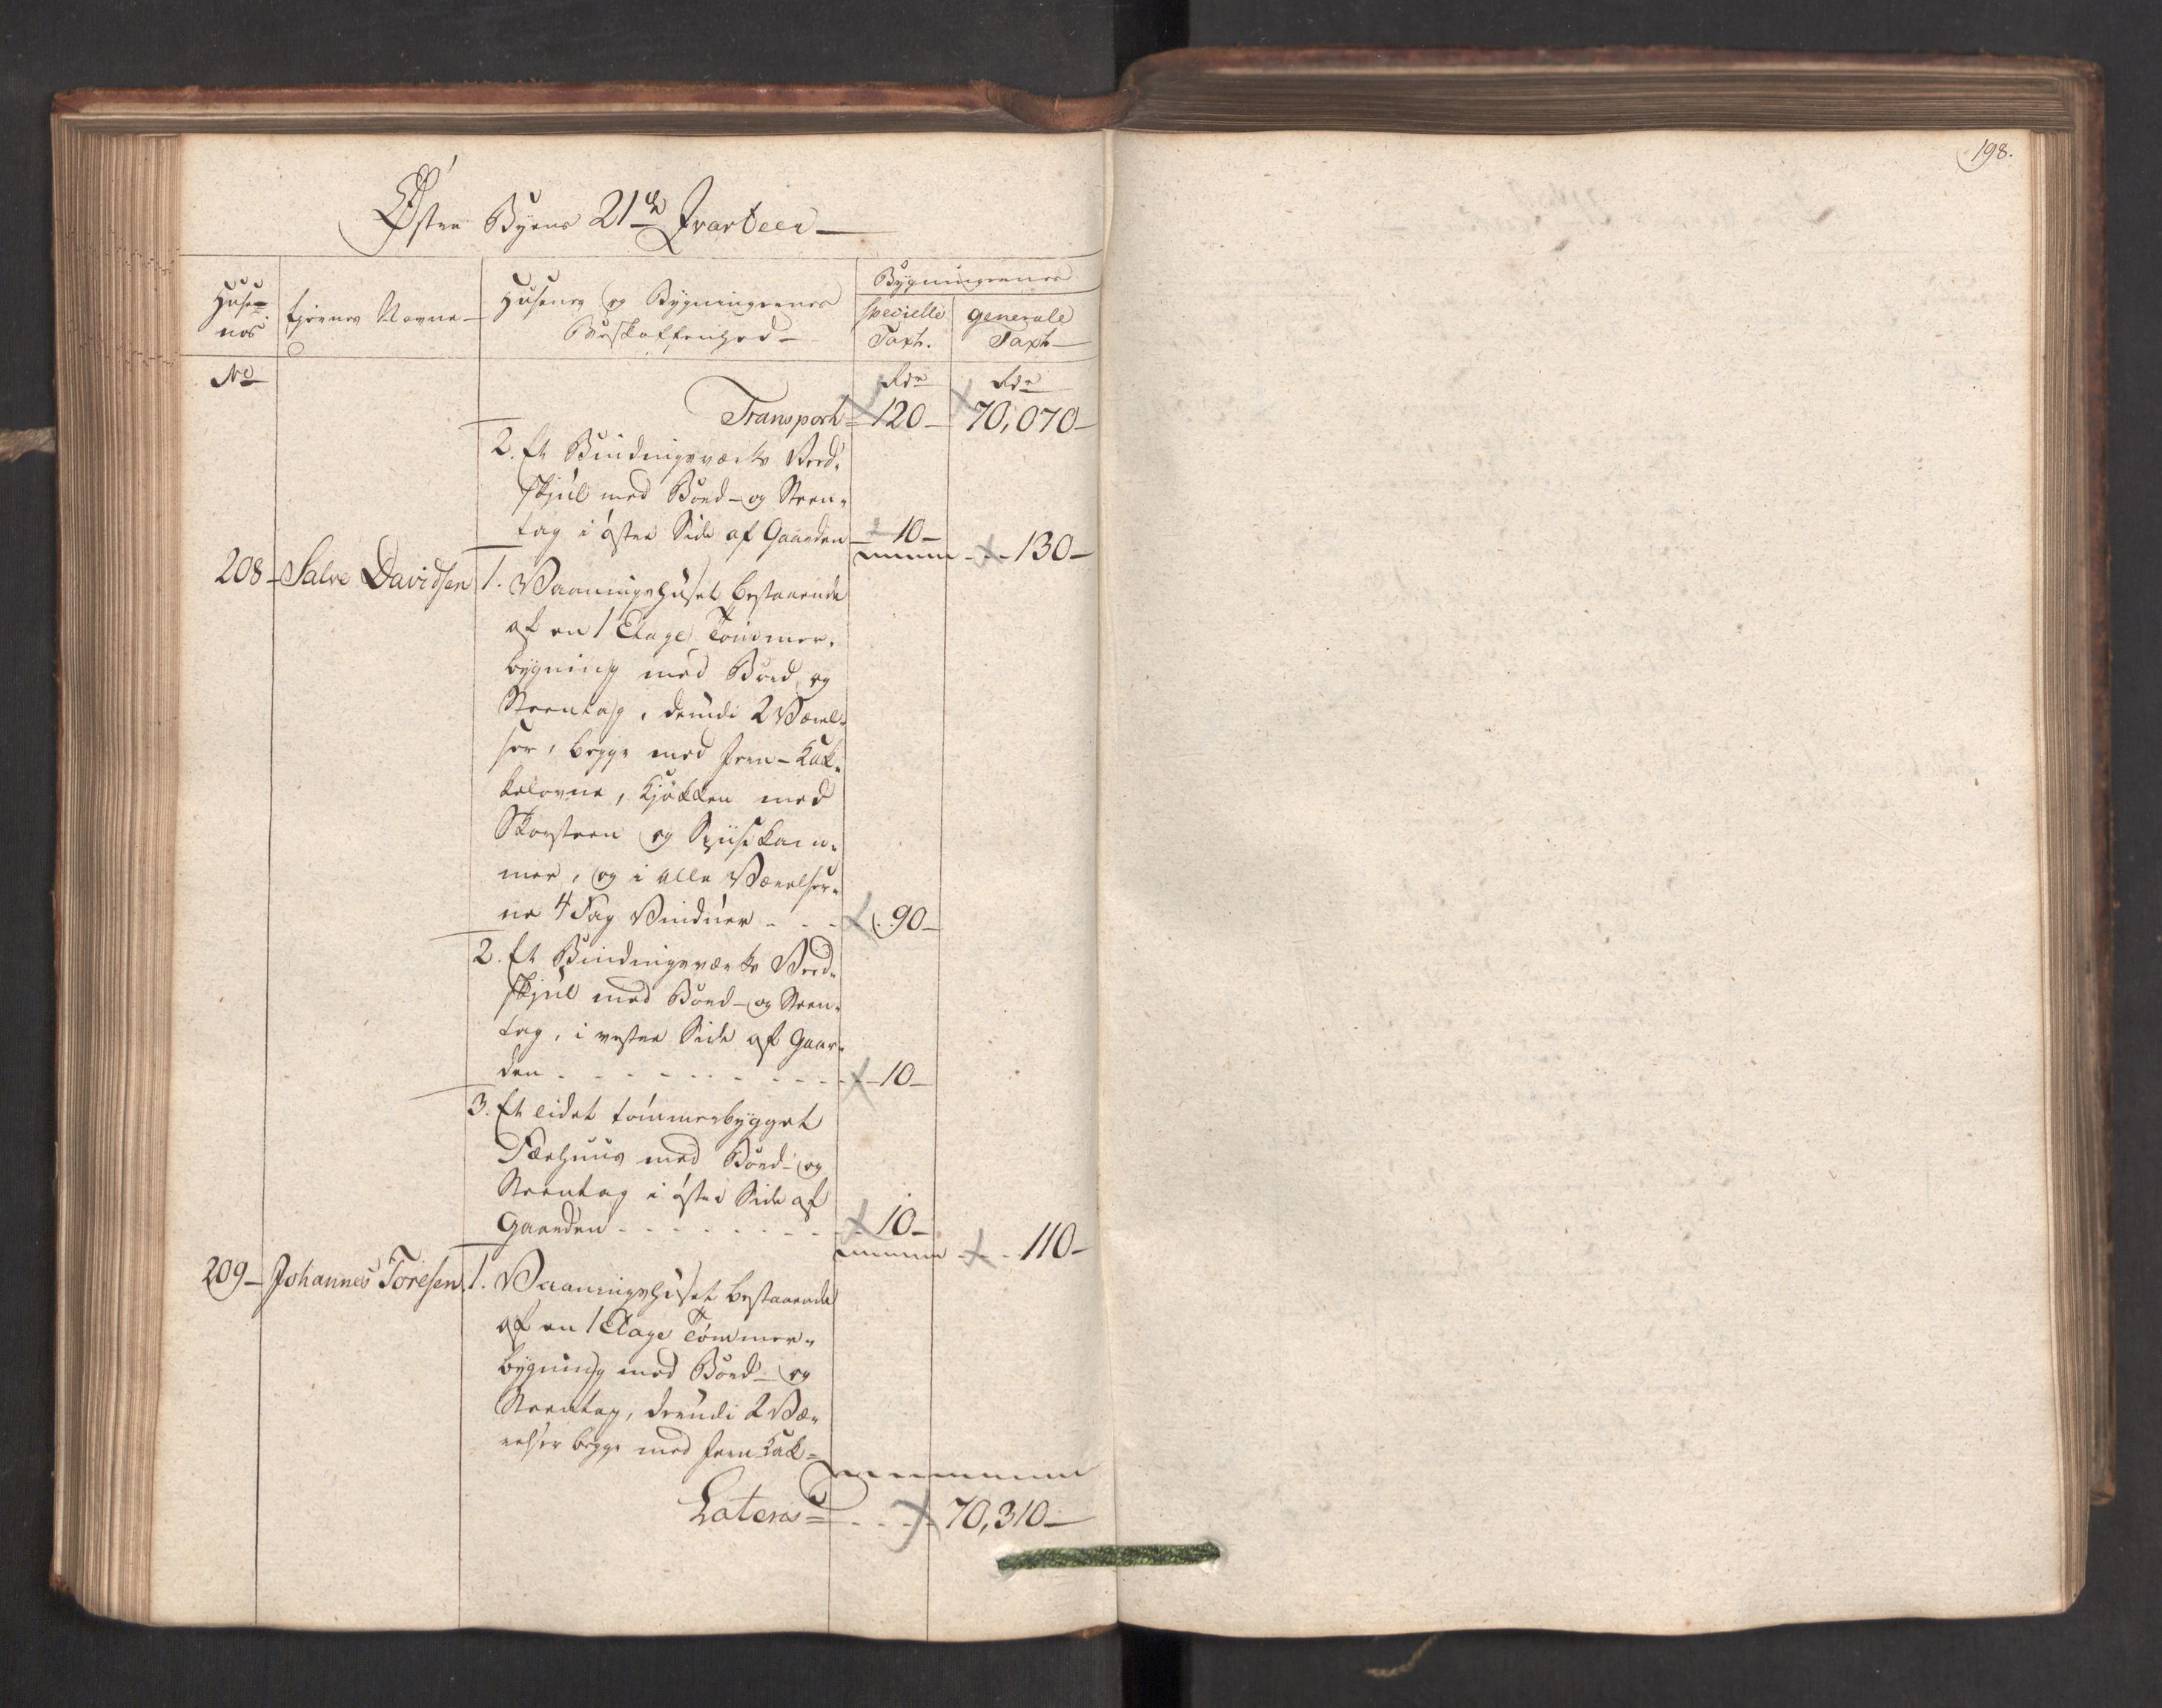 198.
Østre Byens 21de Qvarteer
Huse-
nes
Ejernes Navne
Husenes og Bygningernes
Beskaffenhed
Bygningernes
specielle
Taxt.
generale
Taxt
No
Rdr
Rdr
Transport = 120 - 70,070 -
2. Et Bindingsværks Veed-
skjul med Bord- og Steen-
tag i østre Side af Gaarden - 10 -
- 130 -
208 - Salve Davidsen 1. Vaaningshuset bestaaende
af en 1 Etage Tømmer-
bygning med Bord og
Steentag, deri 2 Værel-
ser, begge med Jern-Kak-
kelovne, Kjøkken med
Skorsteen og Spiisekam-
mer, og i alle Værelser-
ne 4 Fag Vinduer - - - 90 -
2. Et Bindingsværks Veed-
skjul med Bord- og Steen-
tag, i vestre Side af Gaar-
den - - - - - 10 -
3. Et lidet tømmerbygget
Fæehuus med Bord- og
Steentag i østre Side af
Gaarden - - - - - 10 -
- 110 -
209 - Johannes Toresen. 1. Vaaningshuset bestaaende
af en 1 Etage Tømmer-
bygning med Bord- og
Steentag, deri 2 Væ-
relser begge med Jern-Kak-
Lateris = - - - 70,310 -